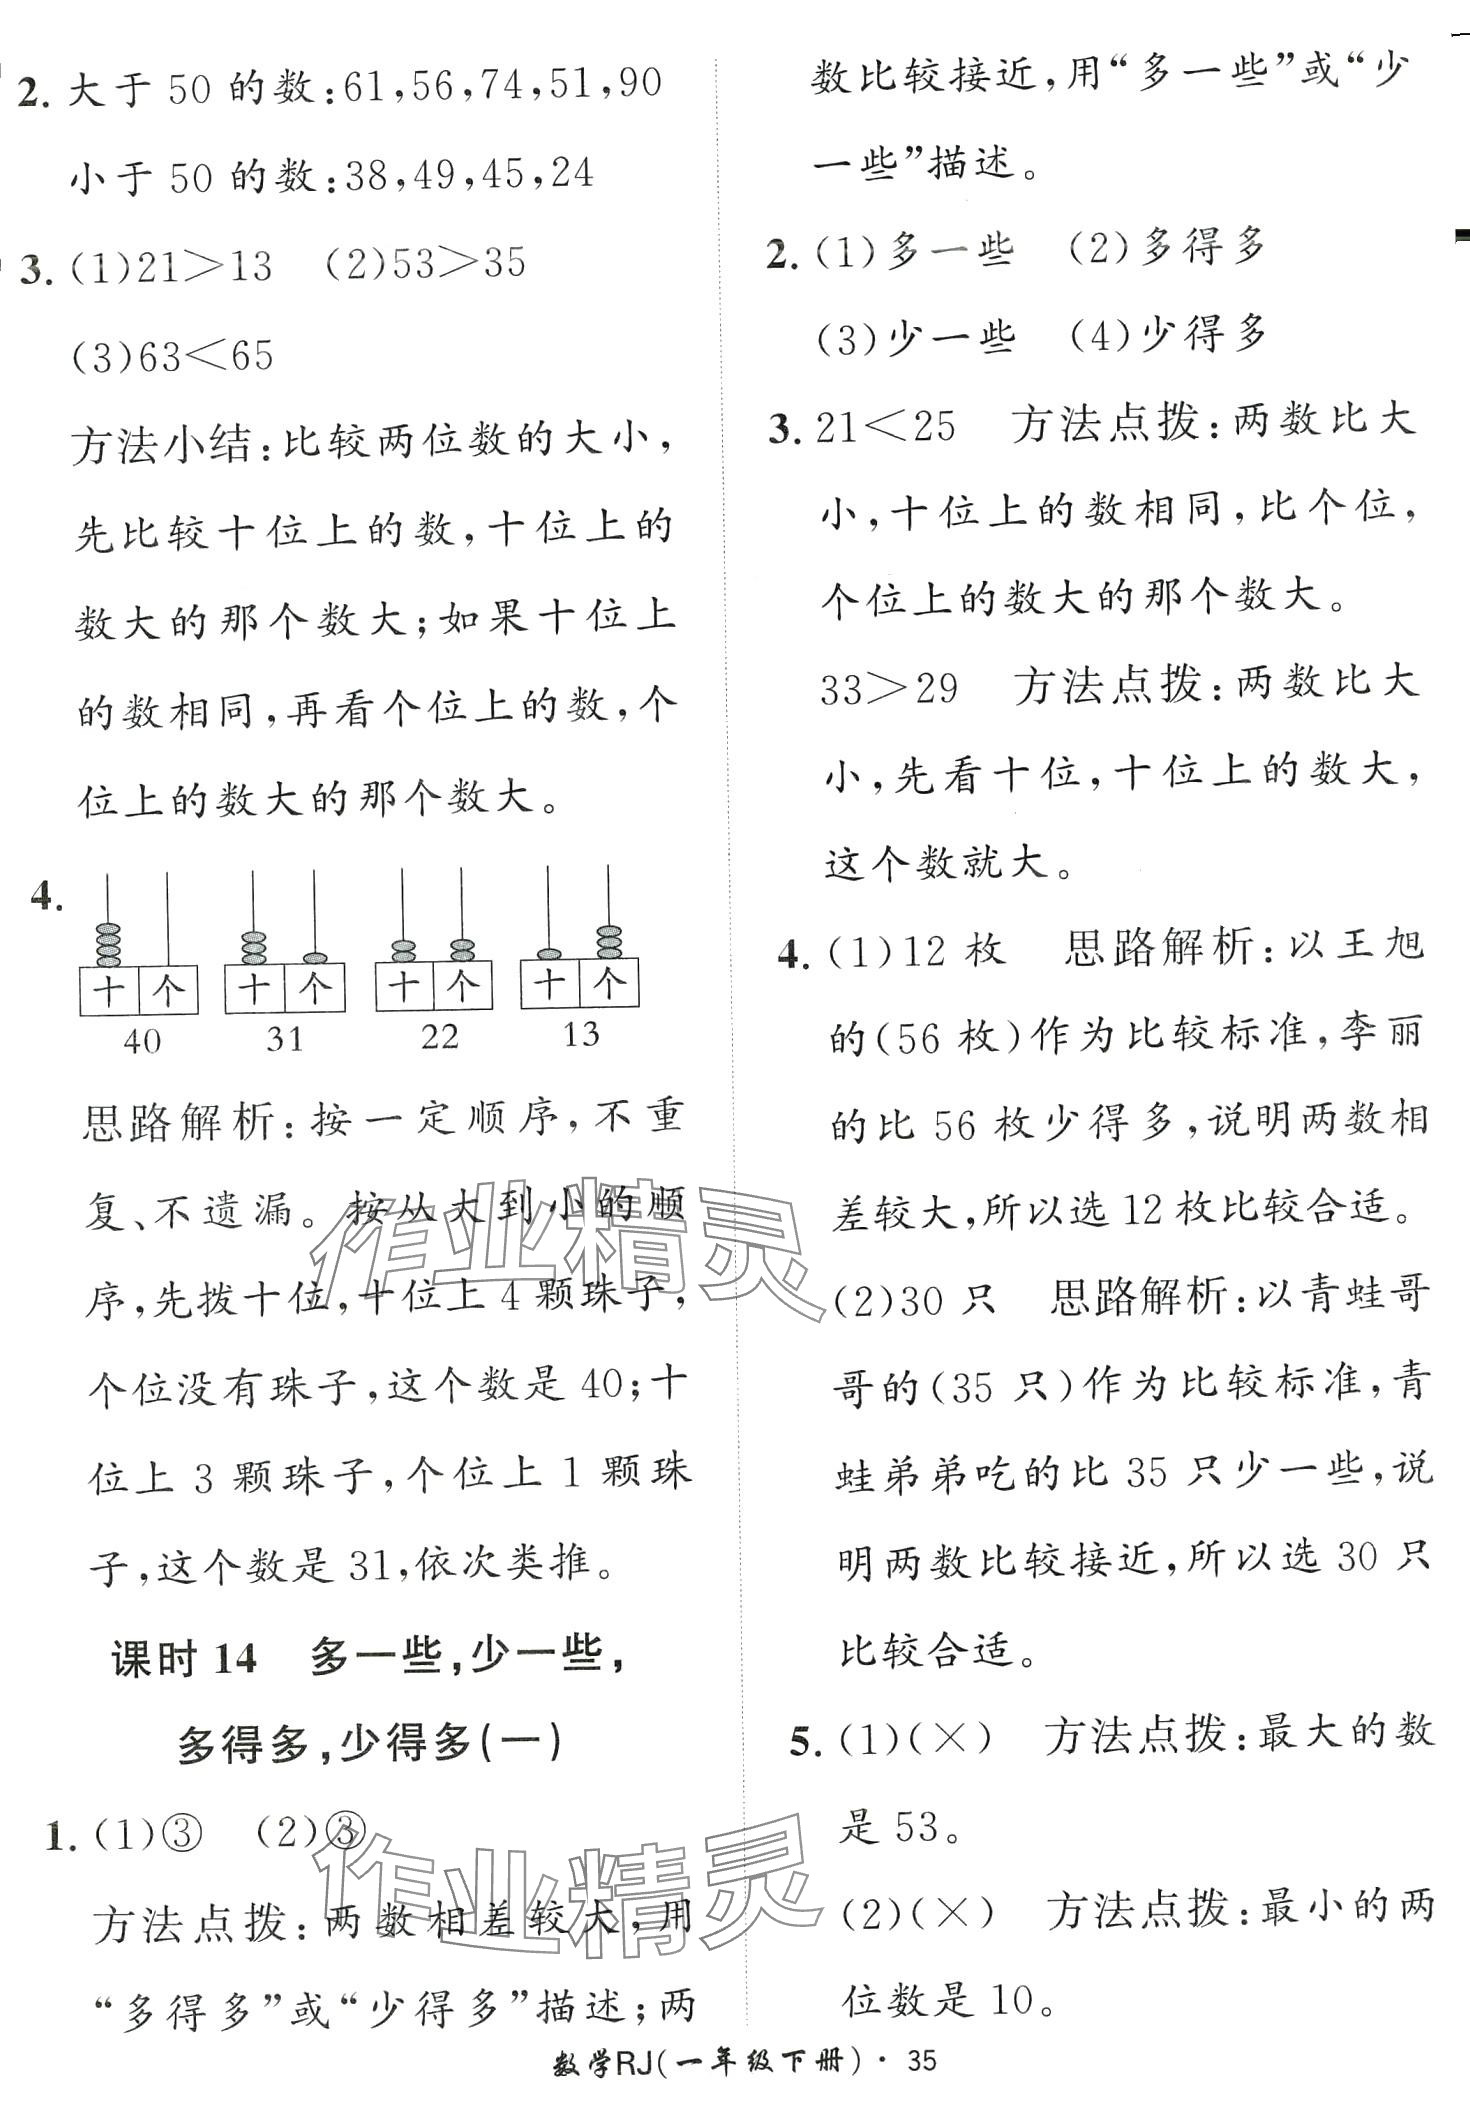 2. 大于 50 的数:61,56,74,51,90
小于 50 的数:38,49,45,24
3. (1)21＞13 (2)53＞35
(3)63＜65
方法小结:比较两位数的大小,
先比较十位上的数,十位上的
数大的那个数大;如果十位上
的数相同,再看个位上的数,个
位上的数大的那个数大。
4.
十 个 十 个 十 个 十 个
40 31 22 13
思路解析:按一定顺序,不重
复、不遗漏。按从大到小的顺
序,先拨十位,十位上 4 颗珠子,
个位没有珠子,这个数是 40;十
位上 3 颗珠子,个位上 1 颗珠
子,这个数是 31,依次类推。
课时 14 多一些,少一些,
多得多,少得多(一)
1. (1)③ (2)③
方法点拨:两数相差较大,用
“多得多”或“少得多”描述;两
数比较接近,用“多一些”或“少
一些”描述。
2. (1)多一些 (2)多得多
(3)少一些 (4)少得多
3. 21＜25 方法点拨:两数比大
小,十位上的数相同,比个位,
个位上的数大的那个数大。
33＞29 方法点拨:两数比大
小,先看十位,十位上的数大,
这个数就大。
4. (1)12 枚 思路解析:以王旭
的(56 枚)作为比较标准,李丽
的比 56 枚少得多,说明两数相
差较大,所以选 12 枚比较合适。
(2)30 只 思路解析:以青蛙哥
哥的(35 只)作为比较标准,青
蛙弟弟吃的比 35 只少一些,说
明两数比较接近,所以选 30 只
比较合适。
5. (1)(×) 方法点拨:最大的数
是 53。
(2)(×) 方法点拨:最小的两
位数是 10。
作业精灵
作业精灵
数学RJ(一年级下册)· 35